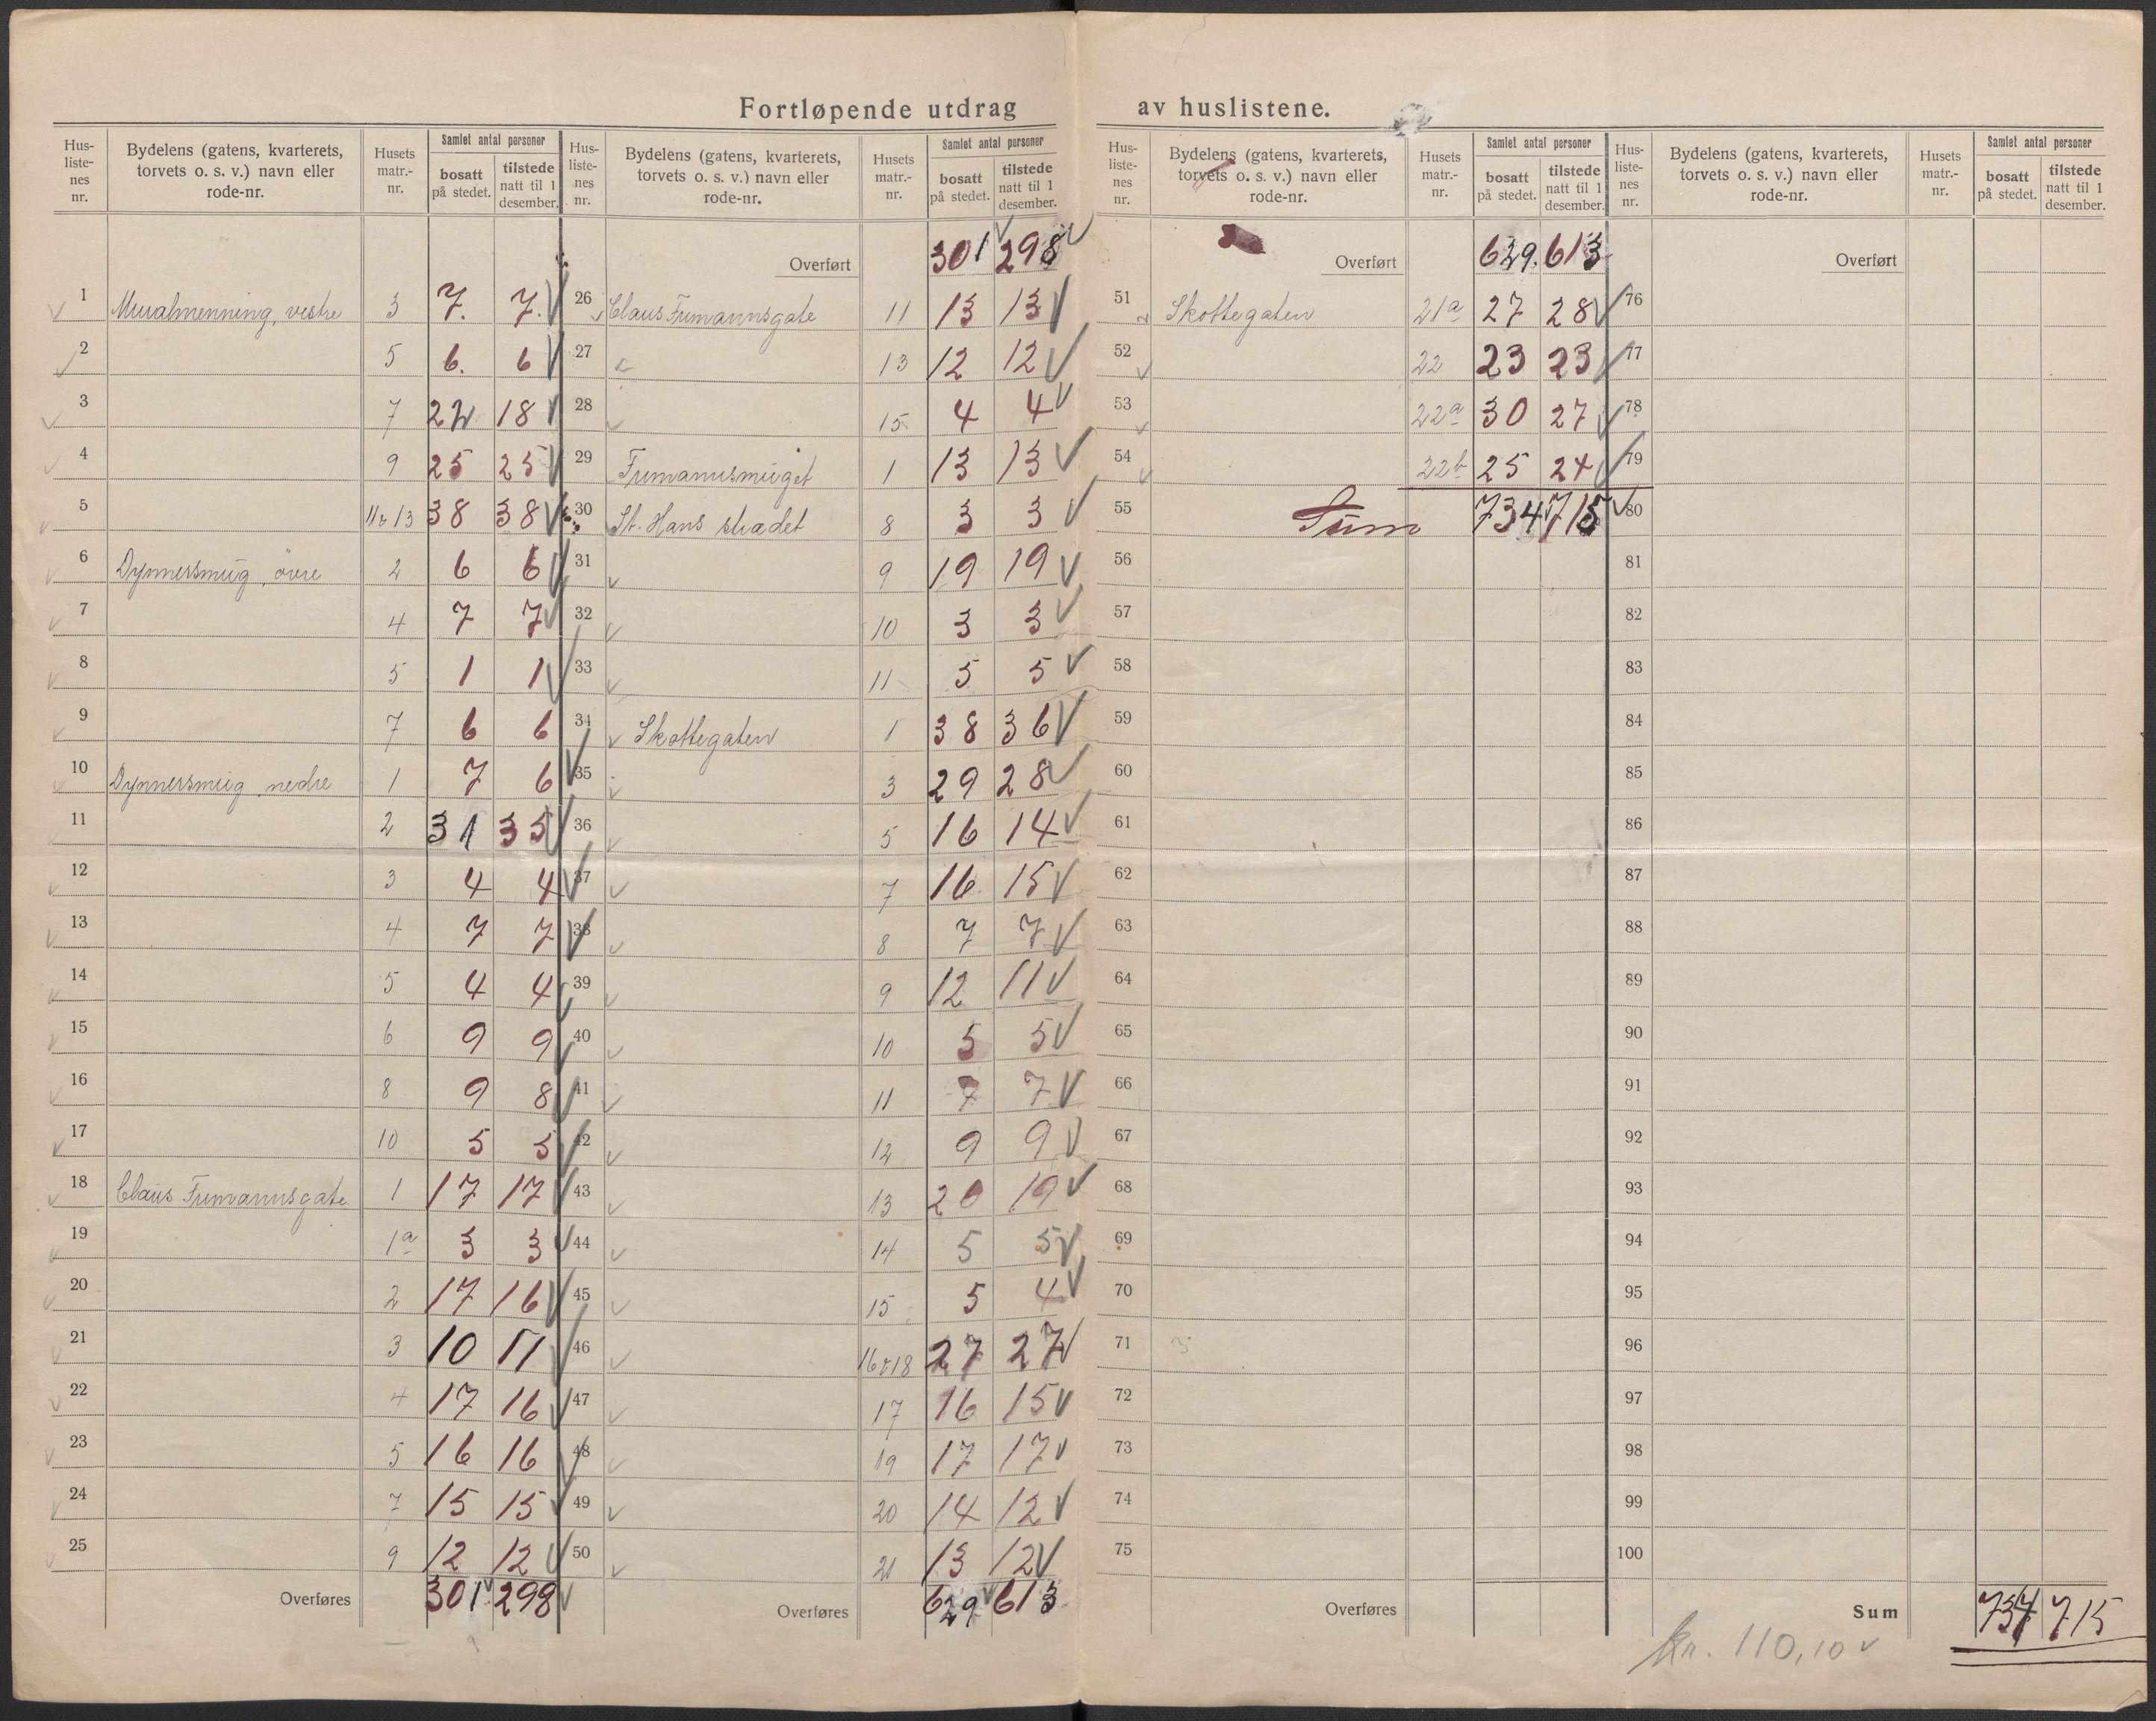 Fortløpende utdrag av huslistene.
Hus-liste-nes nr. Bydelens (gatens, kvarterets, torvets o. s. v.) navn eller rode-nr. Husets matr.-nr. Samlet antal personer bosatt på stedet. tilstede natt til 1 desember.
1 Muralmenning, vestre 3 7. 7.
2 5 6. 6
3 7 22 18
4 9 25 25
5 11 & 13 38 38
6 Dynnersmug, övre 2 6 6
7 4 7 7
8 5 1 1
9 7 6 6
10 Dynnersmug, nedre 1 7 6
11 2 31 35
12 3 4 4
13 4 7 7
14 5 4 4
15 6 9 9
16 8 9 8
17 10 5 5
18 Claus Frimannsgate 1 17 17
19 1a 3 3
20 2 17 16
21 3 10 11
22 4 17 16
23 5 16 16
24 7 15 15
25 9 12 12
Overføres 301 298
Hus-liste-nes nr. Bydelens (gatens, kvarterets, torvets o. s. v.) navn eller rode-nr. Husets matr.-nr. Samlet antal personer bosatt på stedet. tilstede natt til 1 desember.
Overført 301 298
26 Claus Frimannsgate 11 13 13
27 13 12 12
28 15 4 4
29 Frimannsmuget 1 13 13
30 St. Hans strædet 8 3 3
31 9 19 19
32 10 3 3
33 11 5 5
34 Skottegaten 1 38 36
35 3 29 28
36 5 16 14
37 7 16 15
38 8 7 7
39 9 12 11
40 10 5 5
41 11 7 7
42 12 9 9
43 13 20 19
44 14 5 5
45 15 5 4
46 16 & 18 27 27
47 17 16 15
48 19 17 17
49 20 14 12
50 21 13 12
Overføres 629 613
Hus-liste-nes nr. Bydelens (gatens, kvarterets, torvets o. s. v.) navn eller rode-nr. Husets matr.-nr. Samlet antal personer bosatt på stedet. tilstede natt til 1 desember.
Overført 629. 613
51 Skottegaten 21a 27 28
52 22 23 23
53 22a 30 27
54 22b 25 24
55 Sum 734 715
56
57
58
59
60
61
62
63
64
65
66
67
68
69
70
71
72
73
74
75
Overføres
Hus-liste-nes nr. Bydelens (gatens, kvarterets, torvets o. s. v.) navn eller rode-nr. Husets matr.-nr. Samlet antal personer bosatt på stedet. tilstede natt til 1 desember.
Overført
76
77
78
79
80
81
82
83
84
85
86
87
88
89
90
91
92
93
94
95
96
97
98
99
100
Sum 734 715
kr. 110,10